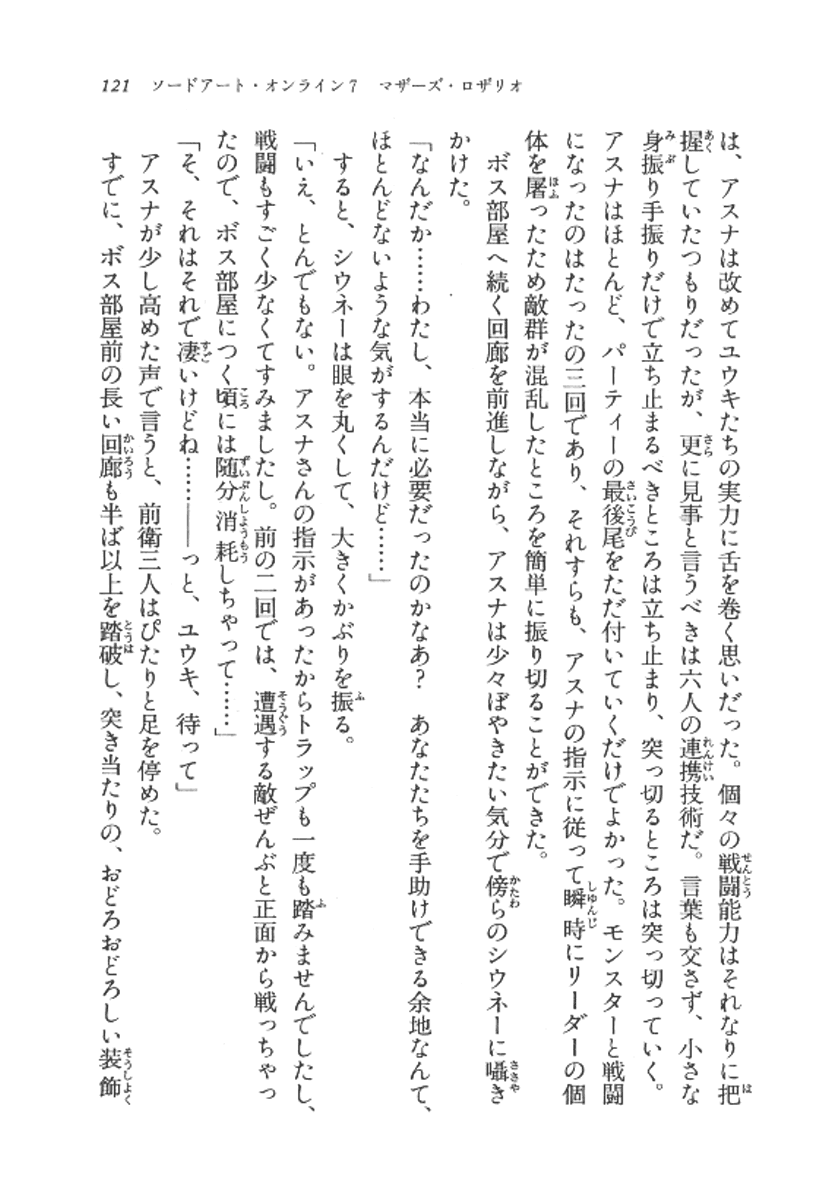 121　ソードアート・オンライン7　マザーズ・ロザリオ
は、アスナは改めてユウキたちの実力に舌を巻く思いだった。個々の戦闘能力はそれなりに把
握していたつもりだったが、更に見事と言うべきは六人の連携技術だ。言葉も交さず、小さな
身振り手振りだけで立ち止まるべきところは立ち止まり、突っ切るところは突っ切っていく。
アスナはほとんど、パーティーの最後尾をただ付いていくだけでよかった。モンスターと戦闘
になったのはたったの三回であり、それすらも、アスナの指示に従って瞬時にリーダーの個
体を屠ったため敵群が混乱したところを簡単に振り切ることができた。
　ボス部屋へ続く回廊を前進しながら、アスナは少々ぼやきたい気分で傍らのシウネーに囁き
かけた。
「なんだか……わたし、本当に必要だったのかなあ？　あなたたちを手助けできる余地なんて、
ほとんどないような気がするんだけど……」
　すると、シウネーは眼を丸くして、大きくかぶりを振る。
「いえ、とんでもない。アスナさんの指示があったからトラップも一度も踏みませんでしたし、
戦闘もすごく少なくてすみましたし。前の二回では、遭遇する敵ぜんぶと正面から戦っちゃっ
たので、ボス部屋につく頃には随分消耗しちゃって……」
「そ、それはそれで凄いけどね……――っと、ユウキ、待って」
　アスナが少し高めた声で言うと、前衛三人はぴたりと足を停めた。
　すでに、ボス部屋前の長い回廊も半ば以上を踏破し、突き当たりの、おどろおどろしい装飾